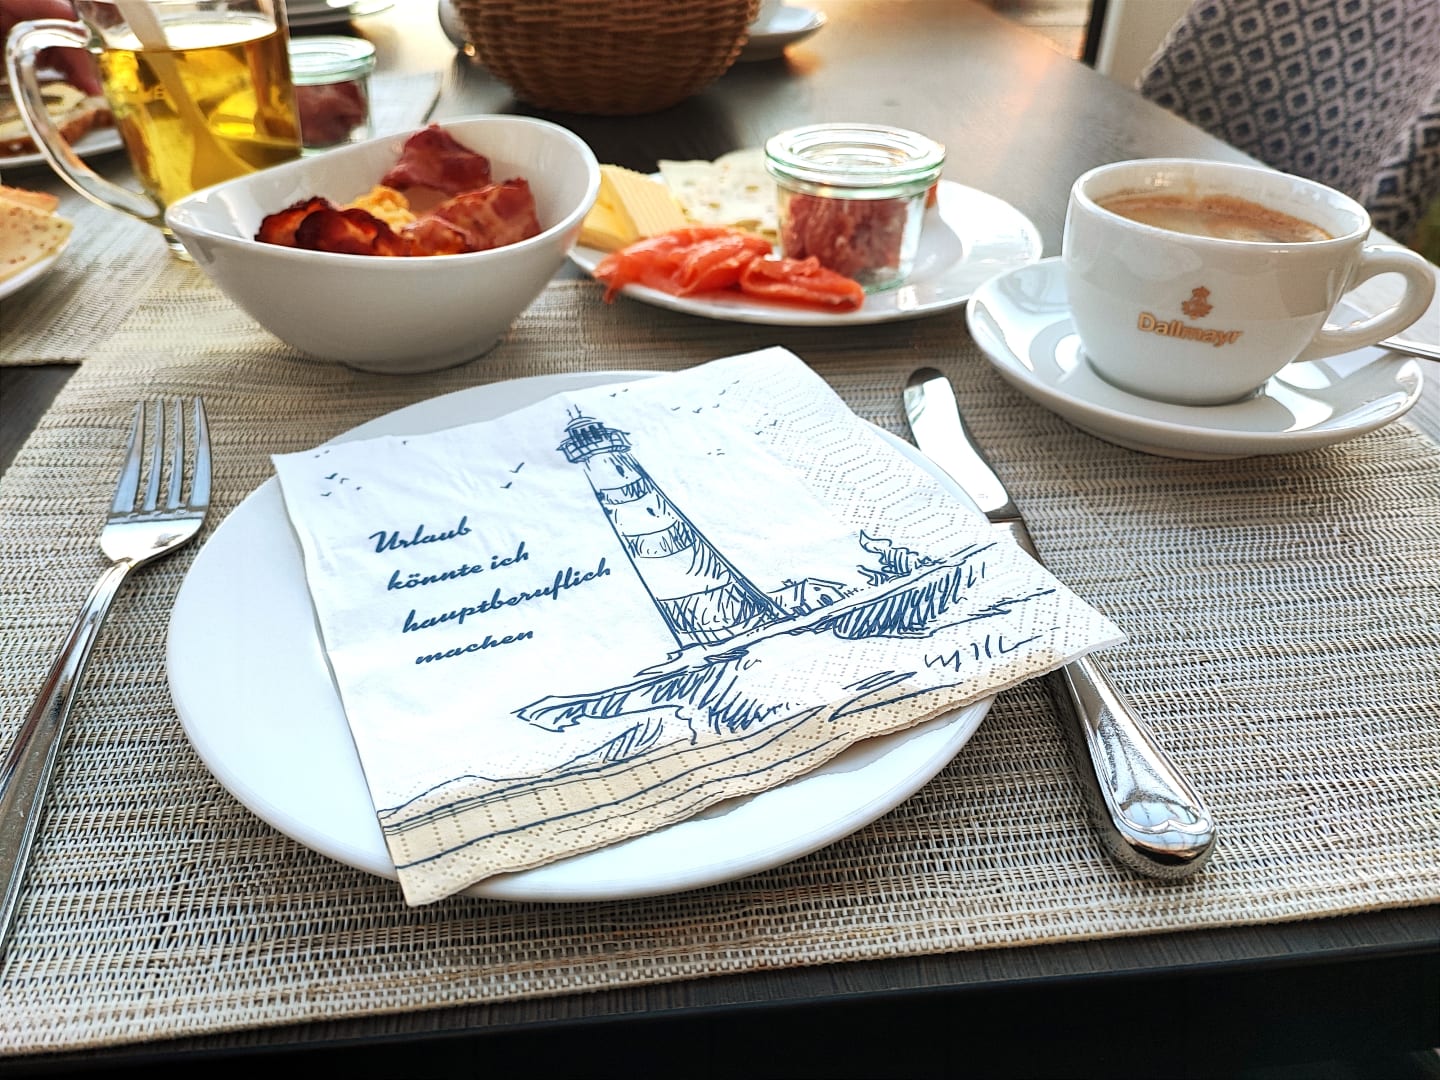 Urlaub
könnte ich
hauptberuflich
machen
Dallmayr